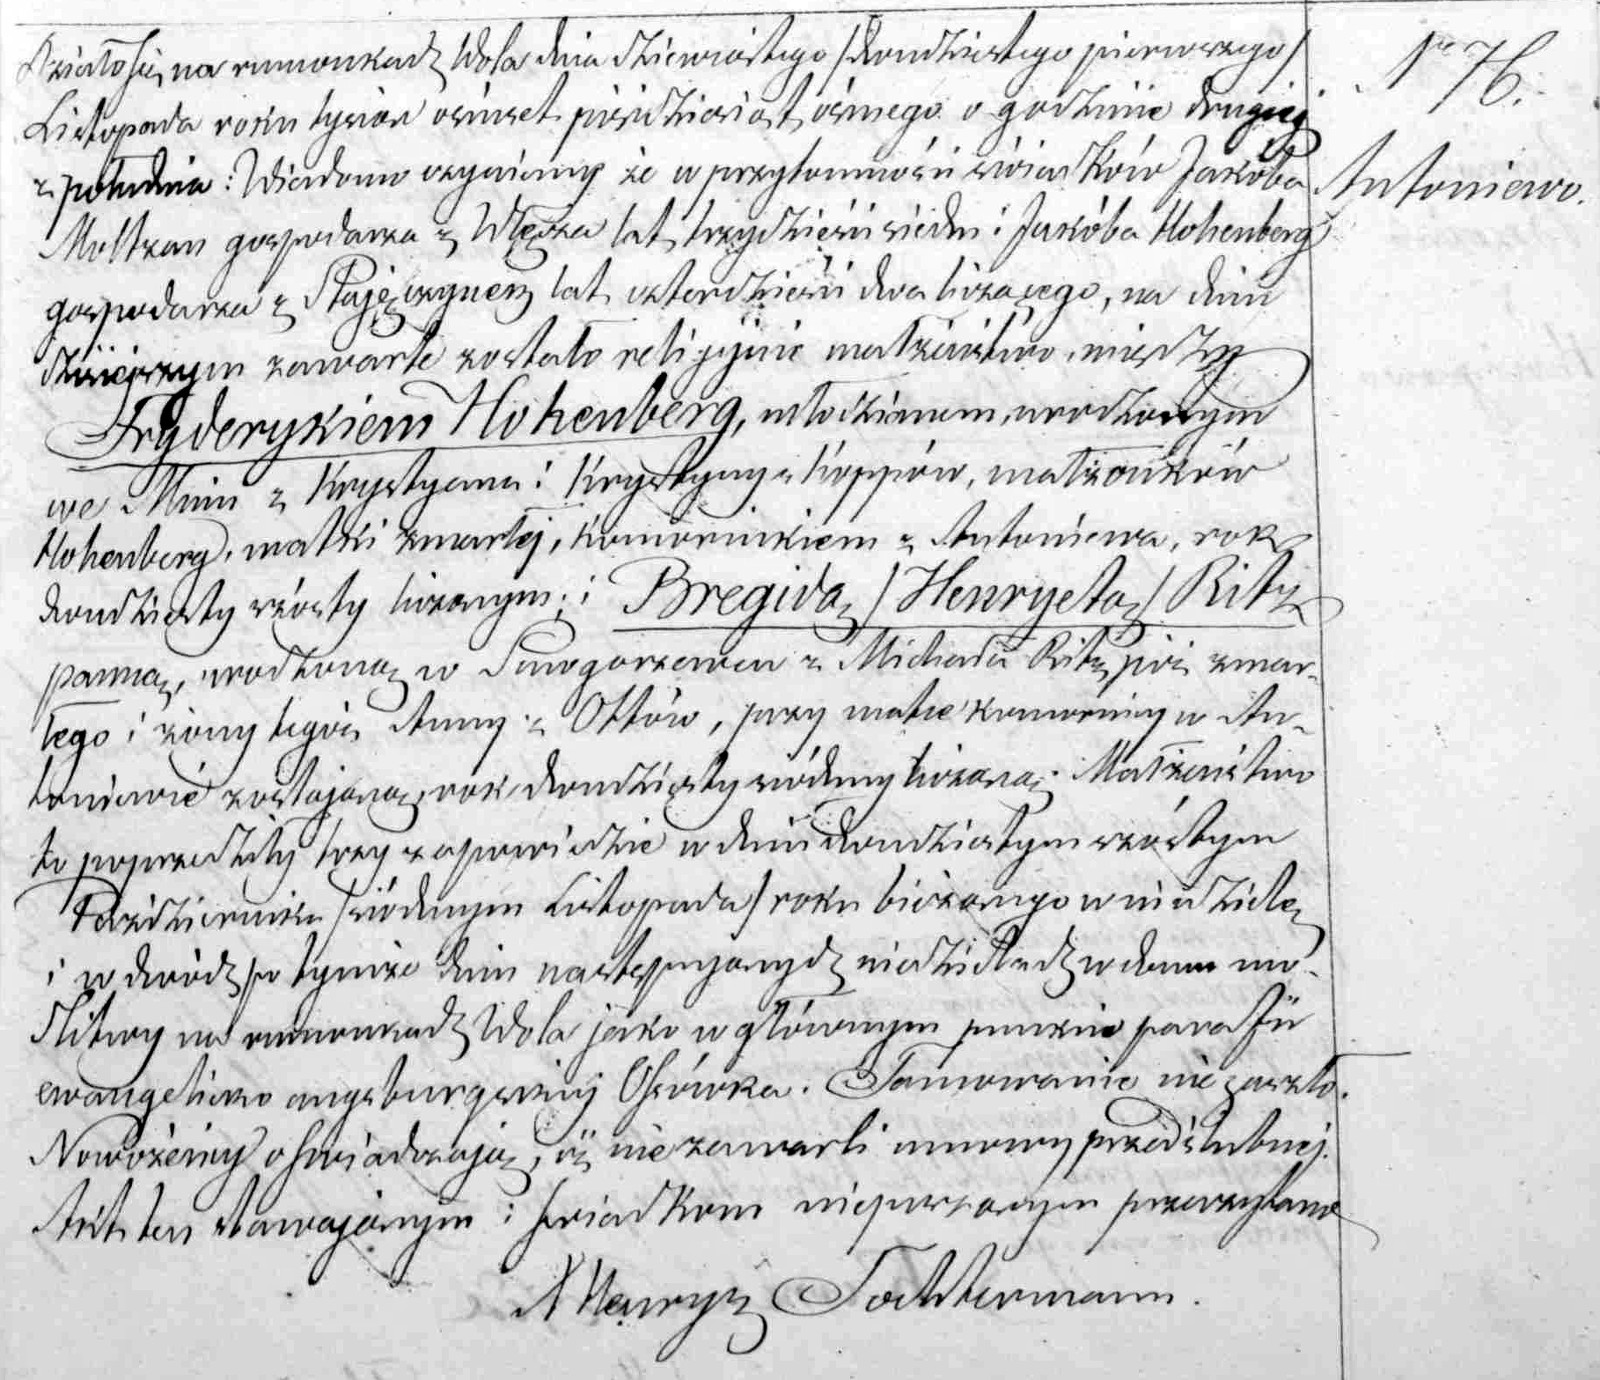 Działo się na rumunkach Wola dnia dziewiątego /dwudziestego pierwszego/
Listopada roku tysiąc ośmset pięśdziesiąt ósmego o godzinie drugiej
z południa: Wiadomo czyniemy że w przytomności świadków Jakóba
Moltzan gospodarza z Włęcza lat trzydzieści siedm i Jakóba Hohenberg
gospodarza z lat czterdzieści dwa liczącego, na dniu
dzisiejszym zawarte zostało religijnie małżeństwo, między
Fryderykiem Hohenberg, młodzianem, urodzonym
we z Krystyana i Krystyny z Koppów, małżonków
Hohenberg, matki zmarłej, komornikiem z Antoniewa, rok
dwudziesty szósty liczącym; i Bregidą /Henryetą/ Ritz
panną, urodzoną w z Michała Ritz już zmar-
łego i żony tegoż Anny z Ottów, przy matce komornicy w An-
toniewie zostającą, rok dwudziesty siódmy liczącą. Małżeństwo
to poprzedziły trzy zapowiedzie w dniu dwudziestym szóstym
Października /siódmym Listopada/ roku bieżącego w niedzielę
i w dwóch po tymże dniu następujących niedzielach w domu mo-
dlitwy na rumunkach Wola jako w głównym punkcie parafii
ewangelicko augsburgskiej Ossówka. Tamowanie nie zaszło.
Nowożeńcy oświadczają, iż nie zawarli umowy przedślubnej.
Akt ten stawającym i świadkom niepiszącym przeczytano
Henryk Tochtermann.
Nr 76.
Antoniewo.